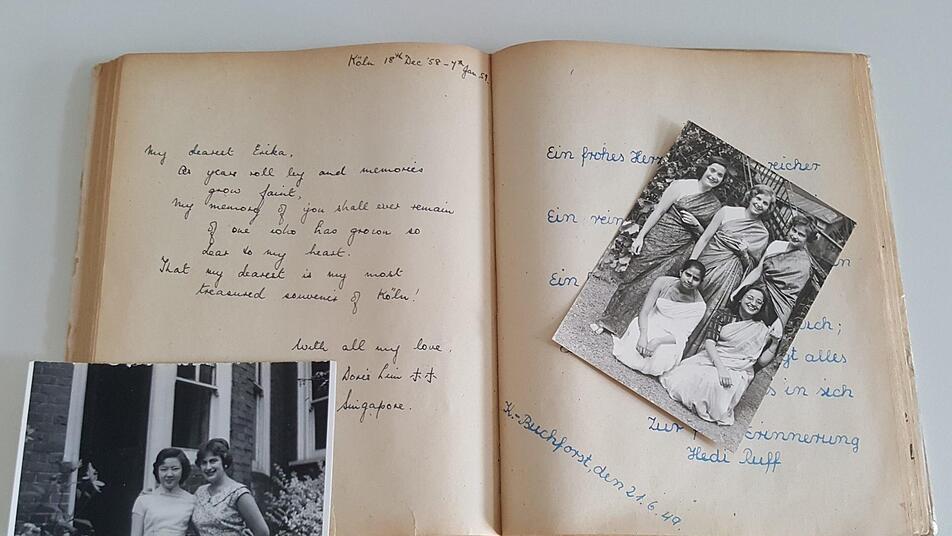 Köln 18th Dec '58 - 7th Jan. 59.
My dearest Erika,
As years roll by and memories
grow faint,
My memory of you shall ever remain
of one who has grown so
dear to my heart.
That my dearest is my most
treasured souvenir of Köln!
With all my love,
Doris Lim 林
Singapore.
Ein frohes Her reicher
Ein rein
n
Ein
sch;
gt alles
s in sich
Zur Erinnerung
Hedi Ruff
K.-Buchforst, den 21.6.49.